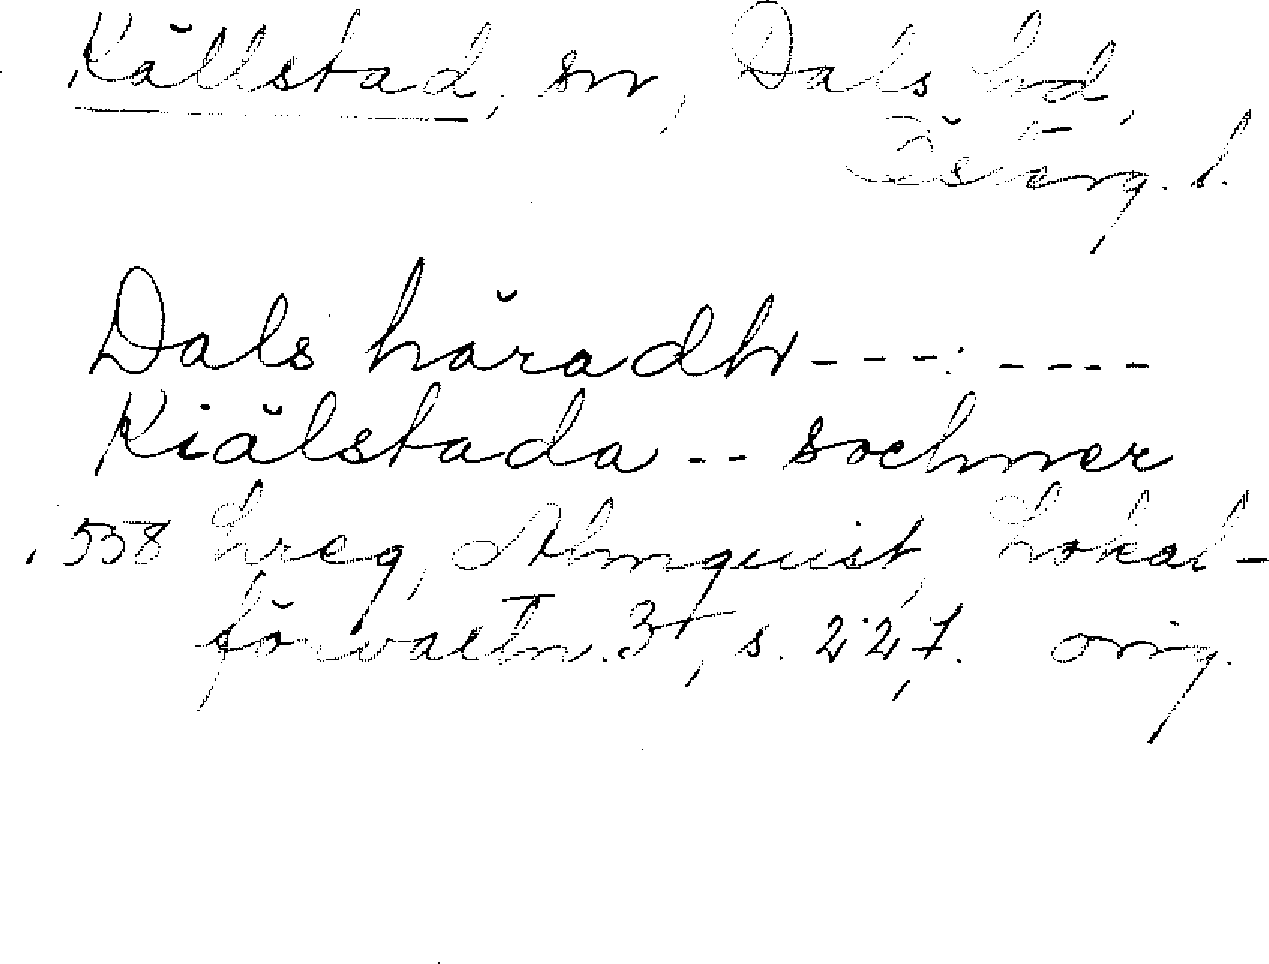 Källstad, sn, Dals hd,
Östérg. l.
Dals häradh --- : ----
Kiälstada -- sochner
1558 hreg, Almquist, Lokal-
förvaltn. 3, s. 227. orig.